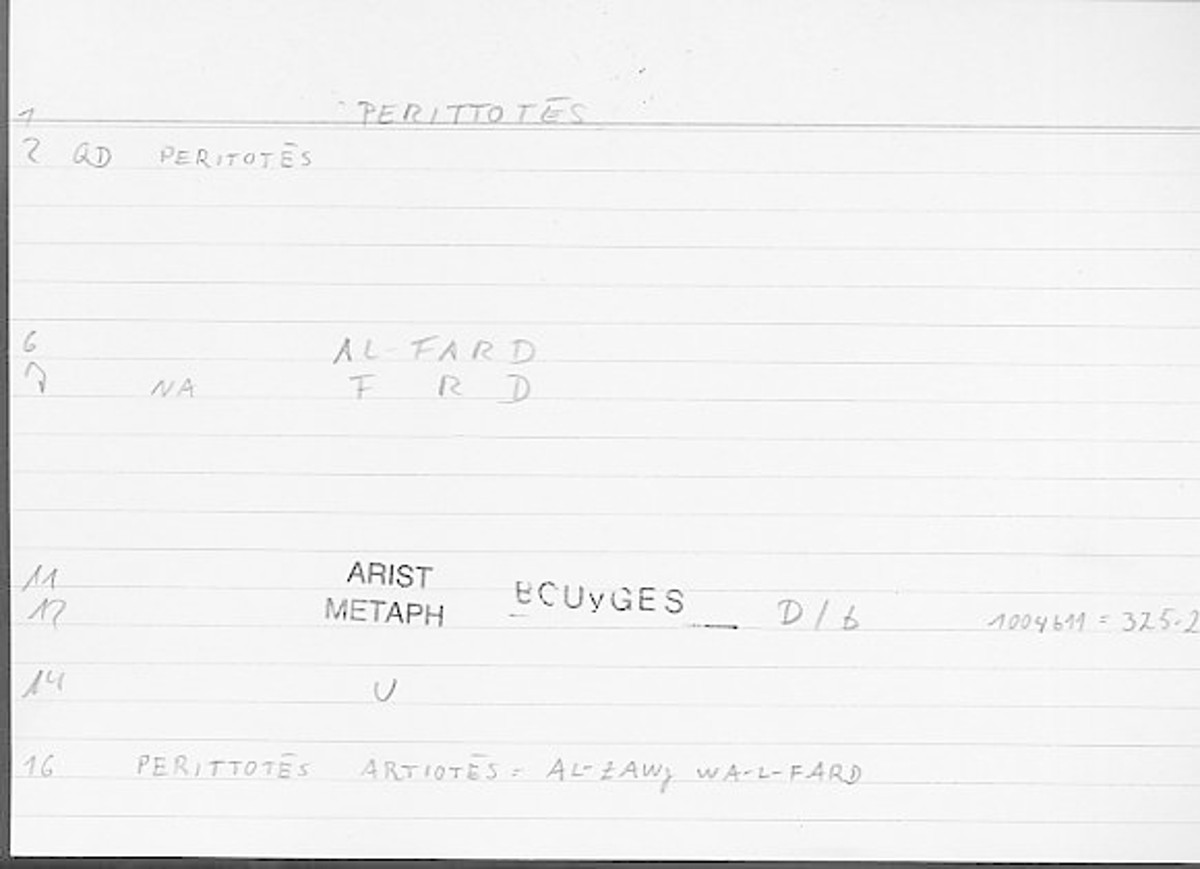 1 PERITTOTĒS
2 QD PERITOTĒS
6 AL-FARD
7 NA F R D
11 ARIST
12 METAPH BOUYGES D/b 1004b11 = 325.2
14 U
16 PERITTOTĒS ARTIOTĒS = AL-ZAWJ WA-L-FARD